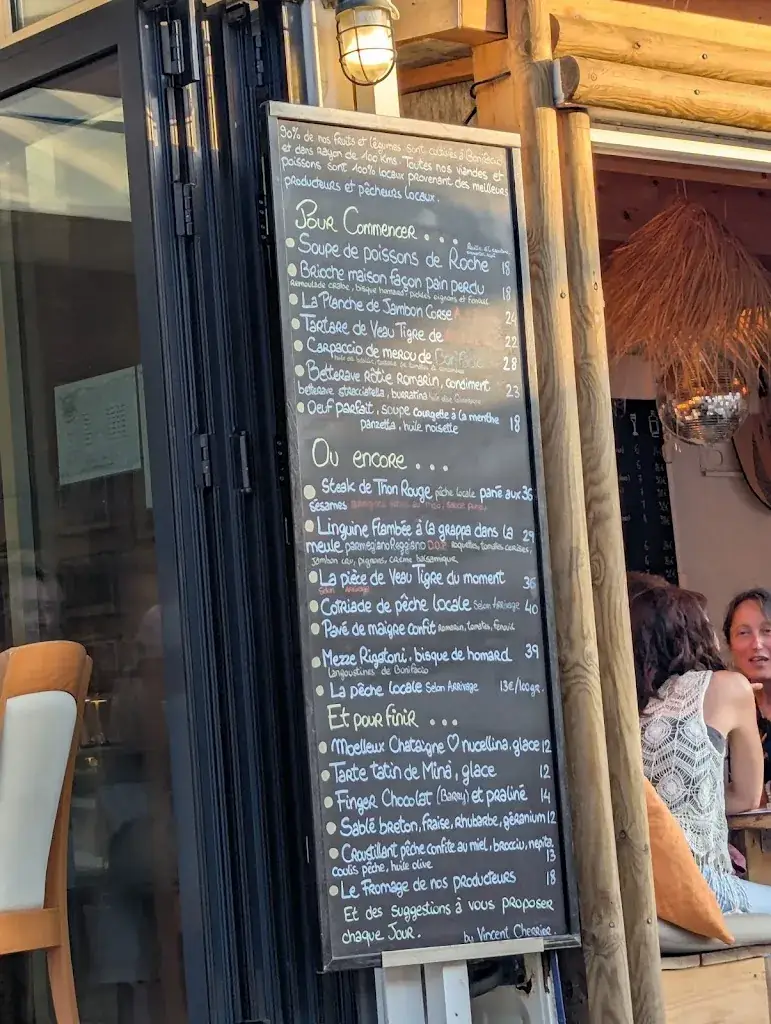 90% de nos fruits et légumes sont cultivés à Bonifacio
et dans rayon de 100 Kms. Toutes nos viandes et
poissons sont 100% locaux provenant des meilleurs
producteurs et pêcheurs locaux.
Pour Commencer...
Soupe de poissons de Roche 18
Brioche maison façon pain perdu 18
Remoulade crabe, bisque homard, pickles oignons et fenouil
La Planche de Jambon Corse 24
Tartare de Veau Tigre de 22
Carpaccio de merou de Bonifacio 28
Betterave rôtie romarin, condiment 23
betterave stracciatella, burratina
Oeuf parfait, soupe courgette à la menthe 18
panzetta, huile noisette
Ou encore...
Steak de Thon Rouge pêche locale pané aux 36
sésames
Linguine Flambée à la grappa dans la 29
meule parmegiano Reggiano D.O.P roquettes, tomates cerises,
jambon cru, pignons, crème balsamique
La pièce de Veau Tigre du moment 36
Selon Arrivage
Cotriade de pêche locale Selon Arrivage 40
Pavé de maigre confit romarin, tomates, fenouil
Mezze Rigatoni, bisque de homard 39
langoustines de Bonifacio
La pêche locale Selon Arrivage 13€/100gr.
Et pour finir...
Moelleux Chataigne ♡ nucellina, glace 12
Tarte tatin de Minà, glace 12
Finger Chocolat (Barry) et praliné 14
Sablé breton, fraise, rhubarbe, géranium 12
Croustillant pêche confite au miel, brocciu, nepita,
coulis pêche, huile olive 13
Le Fromage de nos producteurs 18
Et des suggestions à vous proposer
chaque Jour. by Vincent Cherrier.